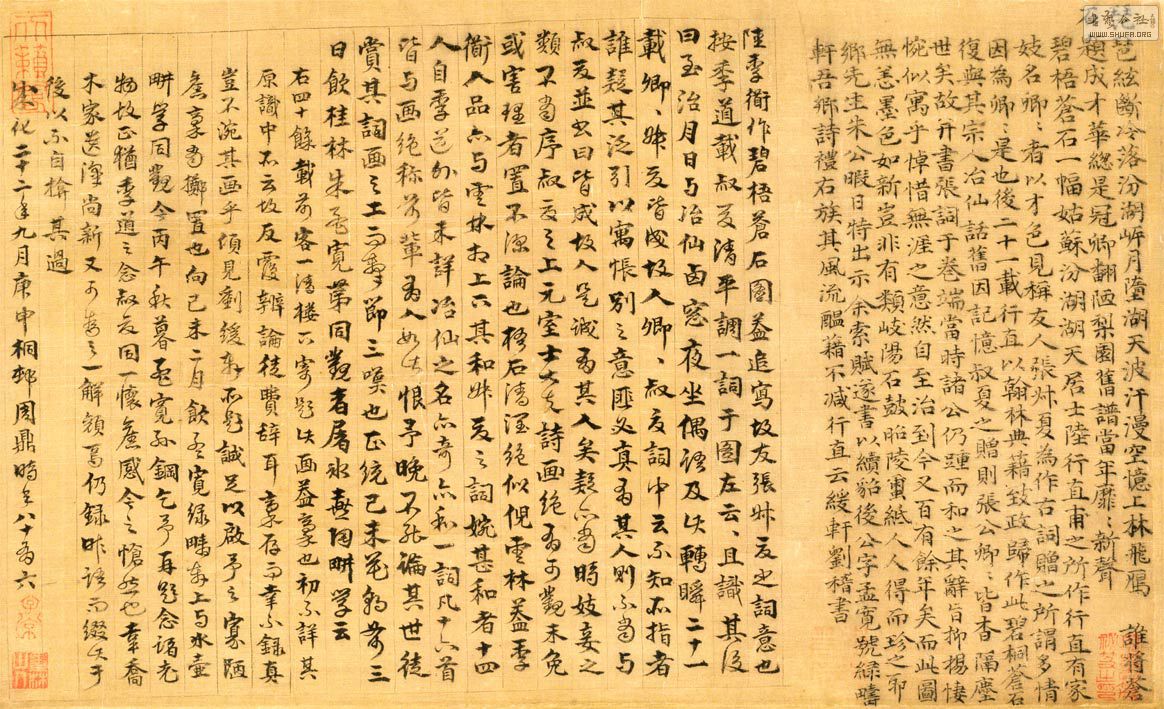 琶絃斷冷落汾湖岍月墮湖天波汗漫空憶上林飛鴈 誰將蒼
石題成才華總是冠卿翻陋梨園舊譜當年靡〻新聲
碧梧蒼石一幅姑蘇汾湖湖天居士陸行直甫之所作行直有家
妓名卿〻者以才色見稱友人張叔夏為作古詞贈之所謂多情
因為卿〻是也後二十一載行直以翰林典籍致政歸作此碧桐蒼石
復與其宗人冶仙話舊因記憶叔夏之贈則張公卿〻皆杳隔塵
世矣故并書張詞于卷端當時諸公仍踵而和之其辭旨抑揚悽
惋似寓乎悼惜無涯之意然自至治到今又百有餘年矣而此圖
無恙墨色如新豈非有類岐陽石鼓昭陵璽紙人人得而珍之耶
鄉先生朱公暇日特出示余索賦遂書以續貂後公字孟寬號綠疇
軒吾鄉詩禮右族其風流醞藉不減行直云緩軒劉稽書
陸季衜作碧梧蒼石圖蓋追寫故友張叔夏之詞意也
按季道載叔夏清平調一詞于圖左云〻且識其後
曰至治月日與冶仙西窓夜坐偶語及此轉瞬二十一
載卿〻叔夏皆成故人卿〻叔夏詞中云不知所指者
誰疑其泛引以寓悵別之意匪必真有其人則不當與
叔夏並出曰皆成故人是誠有其人矣疑亦當時妓妾之
類不當序叔夏之上元室士大夫詩画絕有可觀未免
或害理者置不深論也樹石清潤絕似倪雲林蓋季
衜人品亦與雲林相上下其和叔夏之詞婉甚和者十四
人自季道外皆未詳冶仙之名亦奇亦和一詞凡十六首
皆与画絕稱前輩為人如此恨予晚不能論其世徒
賞其詞画之工而擊節三嘆也正統己未花朝前三
日飲桂林朱孟寬第同觀者屠永無陶畊學云
右四十餘載前客一清樓下寄題此画蓋稾也初不詳其
原識中不云故反覆辯論徒費辭耳稾存而幸不錄真
豈不涴其画乎傾見劉緩軒所題誠足以啟予之寡陋
舊稾當擲置也向己未二月飲孟寬綠疇軒上与永無
畊學同觀今丙午秋暮孟寬孫鋼乞予再題念諸老
物故正猶季道之念叔夏回一懷舊感今之愴然也幸喬
木家送澤尚新又可喜之一解頤焉仍錄昨語而綴此于
後以示自揜其過
成化二十二年九月庚申桐邨周鼎時年八十有六
书法公社
www.SHUFA.ORG